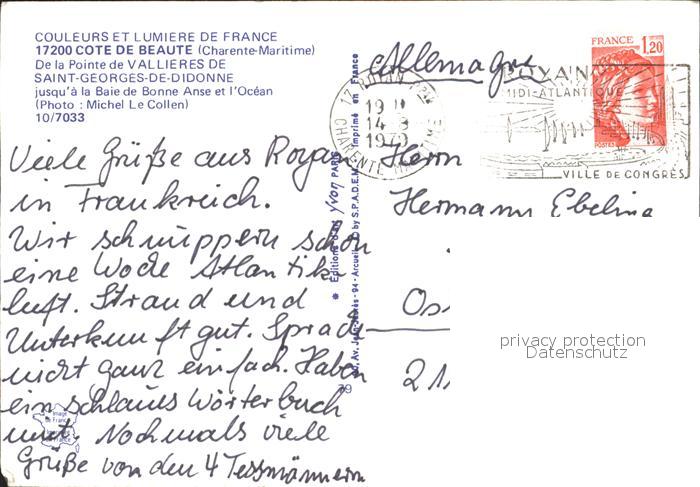 COULEURS ET LUMIERE DE FRANCE
17200 COTE DE BEAUTE (Charente-Maritime)
De la Pointe de VALLIERES DE
SAINT-GEORGES-DE-DIDONNE
jusqu'à la Baie de Bonne Anse et l'Océan
(Photo : Michel Le Collen)
10/7033
Viele Grüße aus Royan
in Frankreich.
Wir schnuppern schon
eine Woche Atlantik-
luft. Strand und
Unterkunft gut. Sprache
nicht ganz einfach. Haben
ein schlaues Wörterbuch
mit. Nochmals viele
Grüße von den 4 Tessmännern
79
Image
de France
Editions d'art Yvon PARIS
Imprimé en France
Allemagne
17 ROYAN
19 H
14 - 9
1979
CHARENTE MARITIME
ROYAN
MIDI-ATLANTIQUE
VILLE DE CONGRÈS
FRANCE 1,20
POSTES
Herrn
Hermann Ebeling
Os
21
privacy protection
Datenschutz